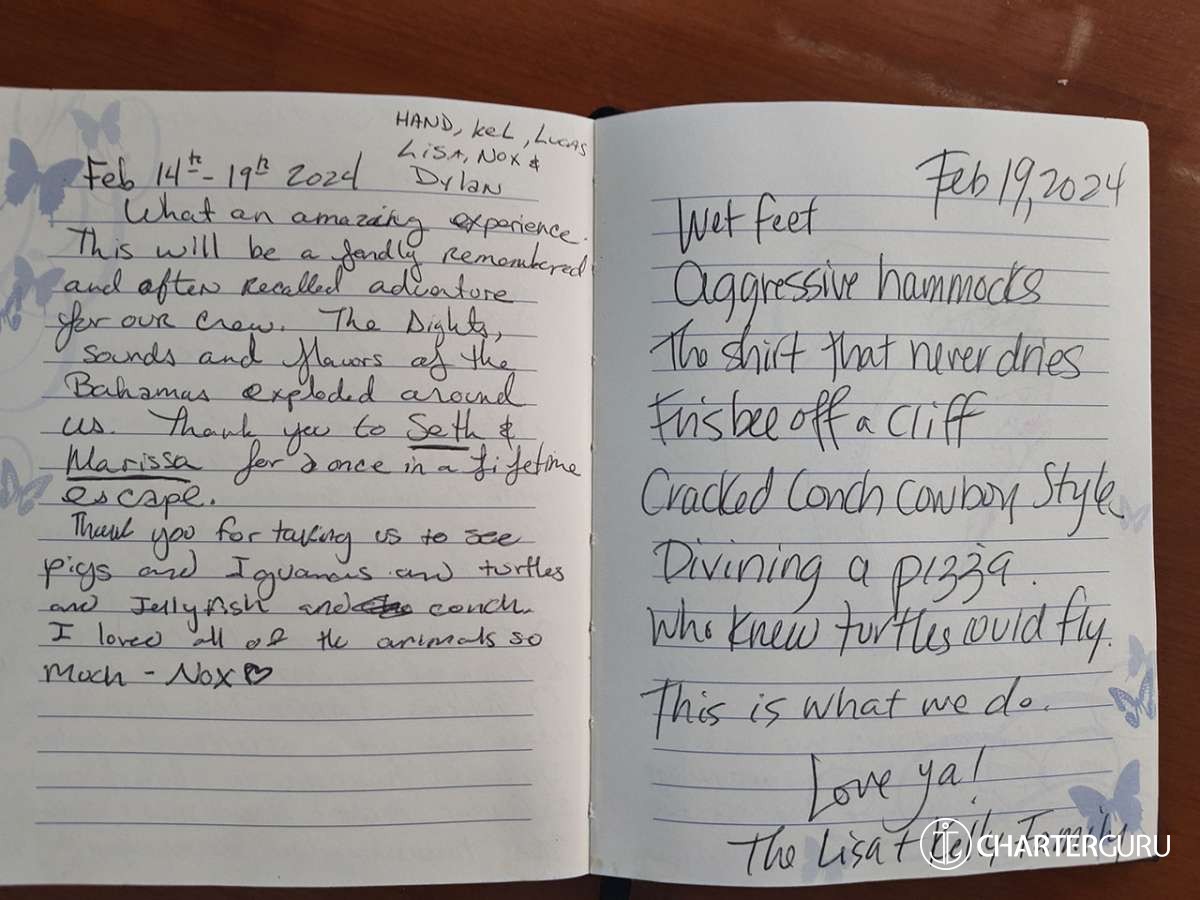 HAND, KeL, LUCAS
LiSA, NOX &
DYLAN
Feb 14th - 19th 2024
What an amazing experience.
This will be a fondly remembered
and often recalled adventure
for our crew. The Sights,
sounds and flavors of the
Bahamas exploded around
us. Thank you to Seth &
Marissa for a once in a lifetime
escape.
Thank you for taking us to see
pigs and Iguanas and turtles
and Jellyfish and conch.
I loved all of the animals so
much - NOX ♡
Feb 19, 2024
Wet feet
Aggressive hammocks
The shirt that never dries
Frisbee off a cliff
Cracked Conch Cowboy Style
Divining a pizza.
Who knew turtles could fly.
This is what we do.
Love ya!
The Lisa + Kelly Family
CHARTERGURU